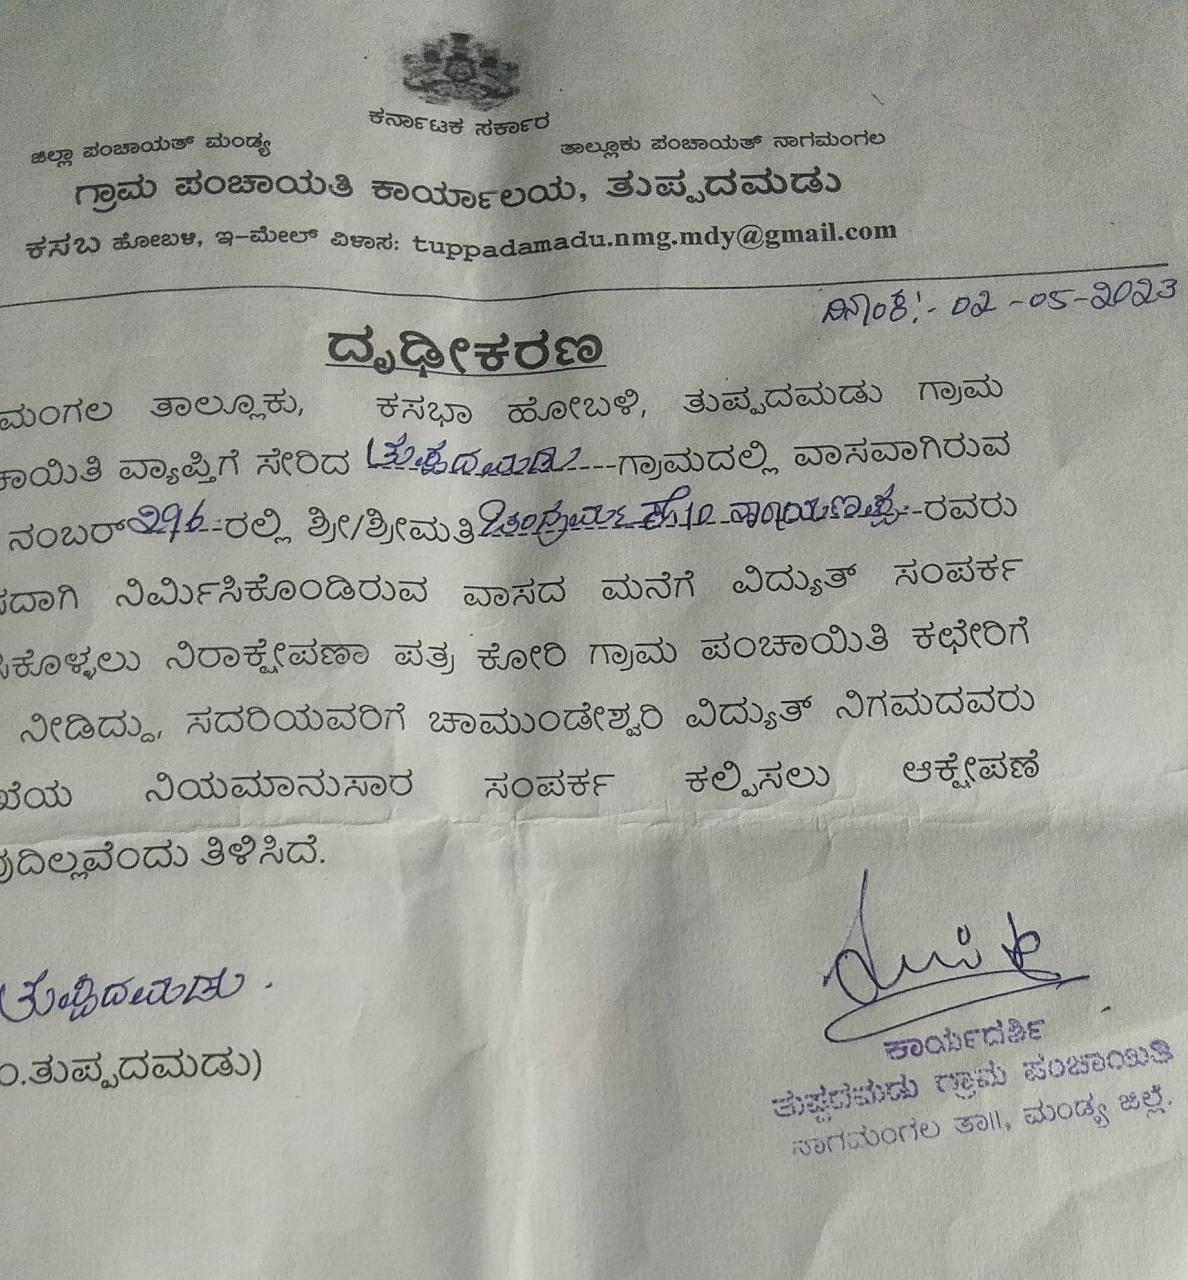 ಕರ್ನಾಟಕ ಸರ್ಕಾರ
ಜಿಲ್ಲಾ ಪಂಚಾಯತ್ ಮಂಡ್ಯ ತಾಲ್ಲೂಕು ಪಂಚಾಯತ್ ನಾಗಮಂಗಲ
ಗ್ರಾಮ ಪಂಚಾಯತಿ ಕಾರ್ಯಾಲಯ, ತುಪ್ಪದಮಡು
ಕಸಬ ಹೋಬಳಿ, ಇ-ಮೇಲ್ ವಿಳಾಸ: tuppadamadu.nmg.mdy@gmail.com
ದಿನಾಂಕ:- 02-05-2023
ದೃಢೀಕರಣ
ಮಂಗಲ ತಾಲ್ಲೂಕು, ಕಸಭಾ ಹೋಬಳಿ, ತುಪ್ಪದಮಡು ಗ್ರಾಮ
ಕಾಯಿತಿ ವ್ಯಾಪ್ತಿಗೆ ಸೇರಿದ ತುಪ್ಪದಮಡು ---ಗ್ರಾಮದಲ್ಲಿ ವಾಸವಾಗಿರುವ
ನಂಬರ್ 296-ರಲ್ಲಿ ಶ್ರೀ/ಶ್ರೀಮತಿ ನಾರಾಯಣಪ್ಪ-ರವರು
ದಾಗಿ ನಿರ್ಮಿಸಿಕೊಂಡಿರುವ ವಾಸದ ಮನೆಗೆ ವಿದ್ಯುತ್ ಸಂಪರ್ಕ
ಕೊಳ್ಳಲು ನಿರಾಕ್ಷೇಪಣಾ ಪತ್ರ ಕೋರಿ ಗ್ರಾಮ ಪಂಚಾಯಿತಿ ಕಛೇರಿಗೆ
ನೀಡಿದ್ದು, ಸದರಿಯವರಿಗೆ ಚಾಮುಂಡೇಶ್ವರಿ ವಿದ್ಯುತ್ ನಿಗಮದವರು
ಖೆಯ ನಿಯಮಾನುಸಾರ ಸಂಪರ್ಕ ಕಲ್ಪಿಸಲು ಆಕ್ಷೇಪಣೆ
ದಿಲ್ಲವೆಂದು ತಿಳಿಸಿದೆ.
ತುಪ್ಪದಮಡು .
ತುಪ್ಪದಮಡು)
ಕಾರ್ಯದರ್ಶಿ
ತುಪ್ಪದಮಡು ಗ್ರಾಮ ಪಂಚಾಯಿತಿ
ನಾಗಮಂಗಲ ತಾ||, ಮಂಡ್ಯ ಜಿಲ್ಲೆ.